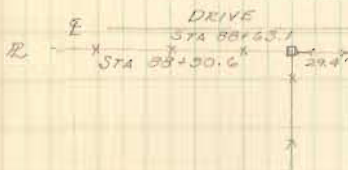 DRIVE
℄
STA 88+63.1
PL
STA 88+50.6
29.4